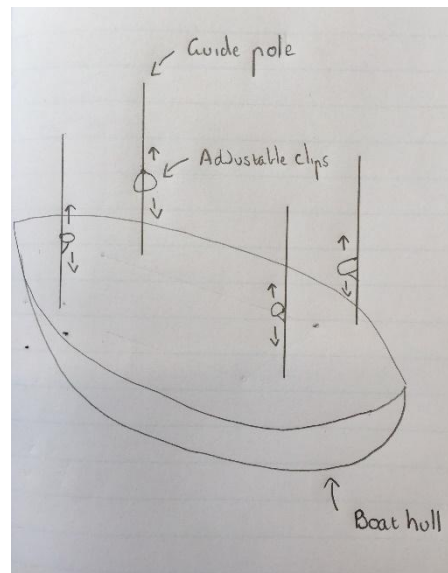 Guide pole
Adjustable clips
Boat hull